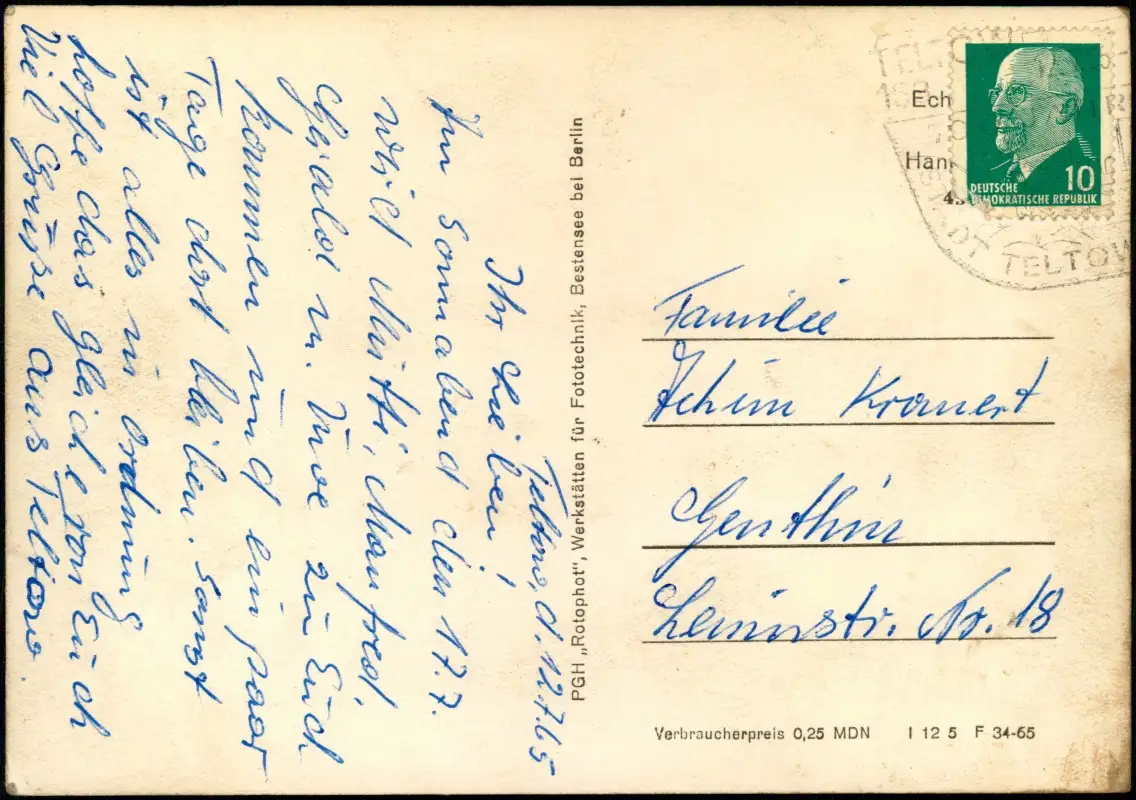 Teltow, d. 12.7.65
Ihr Lieben!
Am Sonnabend den 17.7.
wird Mutti, Manfred,
Gerald u. Uwe zu Euch
kommen und ein paar
Tage dort bleiben. Sonst
ist alles in Ordnung
hoffe das gleiche von Euch
Viel Grüße aus Teltow.
PGH „Rotophot", Werkstätten für Fototechnik, Bestensee bei Berlin
Ech
Han
TELTOW
STADT TELTOW
10
DEUTSCHE
DEMOKRATISCHE REPUBLIK
Familie
Achim Kranert
Genthin
Leninstr. Nr. 18
Verbraucherpreis 0,25 MDN I 12 5 F 34-65